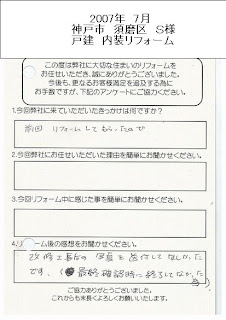 2007年 7月
神戸市 須磨区 S様
戸建 内装リフォーム
この度は弊社に大切な住まいのリフォームを
お任せいただき、誠にありがとうございました。
今後も、更なるお客様満足を追及する為に
お手数ですが、下記のアンケートにご協力ください。
1.今回弊社に来ていただいたきっかけは何ですか?
前回 リフォームしてもらったので
2.今回弊社にお任せいただいた理由を簡単にお聞かせください。
3.今回リフォーム中に感じた事を簡単にお聞かせください。
4.リフォーム後の感想をお聞かせください。
改修工事后の写真を送付してほしかった
です。(最終確認時に終了してなかった
為)
ご協力ありがとうございました。
これからも末長くよろしくお願いいたします。